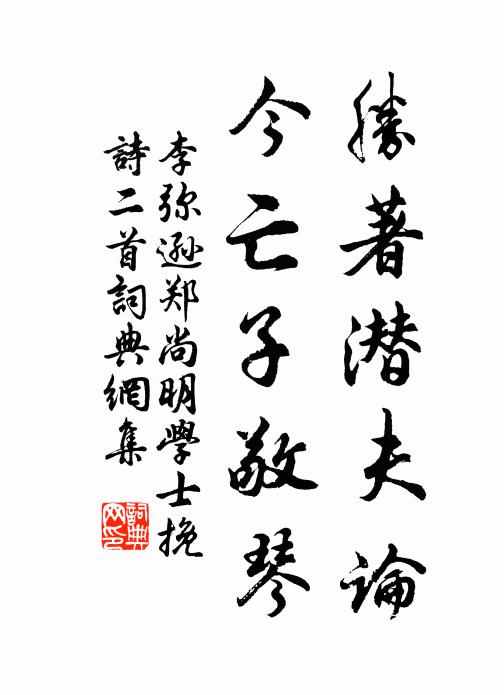 勝著潜夫論
今亡子敬琴
李弥遜郑尚明學士挽
詩二首詞典網集
詞典網印